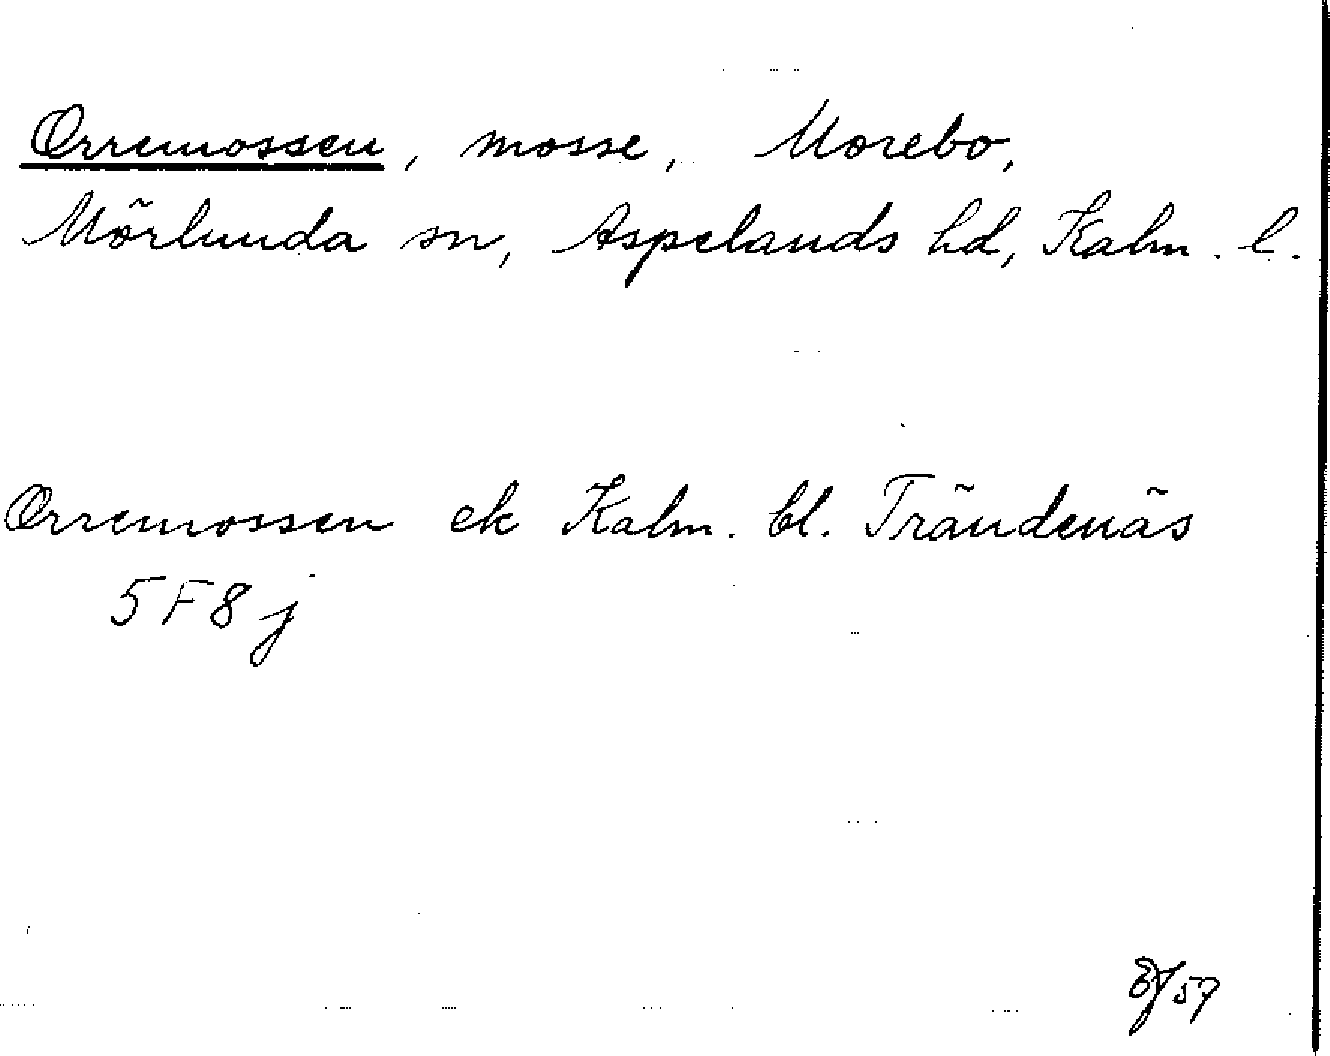 Orremossen, mosse, Morebo,
Mörlunda sn, Aspelands hd, Kalm. l.
Orremossen ek Kalm. bl. Trändenäs
5F8j
57